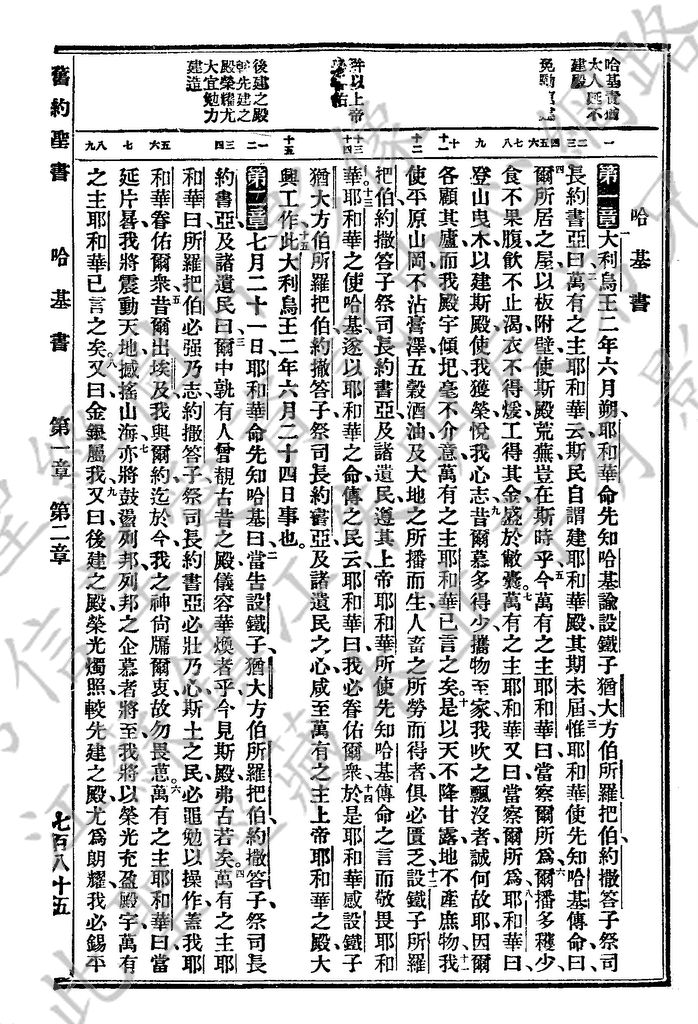 哈基書
第一章 大利烏王二年六月朔耶和華命先知哈基諭設鐵子猶大方伯所羅把伯約撒答子祭司
長約書亞曰萬有之主耶和華云斯民自謂建耶和華殿其期未屆惟耶和華使先知哈基傳命曰
爾所居之屋以板附壁使斯殿荒蕪豈在斯時乎今萬有之主耶和華曰當察爾所爲爾播多穫少
食不果腹飲不止渴衣不得煖工得其金盛於敝囊萬有之主耶和華又曰當察爾所爲耶和華曰
登山曳木以建斯殿使我獲榮悅我心志昔爾慕多得少攜物至家我吹之飄沒者誠何故耶因爾
各顧其廬而我殿宇傾圮毫不介意萬有之主耶和華已言之矣是以天不降甘露地不產庶物我
使平原山岡不沾膏澤五穀酒油及大地之所播而生人畜之所勞而得者俱必匱乏設鐵子所羅
把伯約撒答子祭司長約書亞及諸遺民遵其上帝耶和華所使先知哈基傳命之言而敬畏耶和
華耶和華之使哈基遂以耶和華之命傳之民云耶和華曰我必眷佑爾衆於是耶和華感設鐵子
猶大方伯所羅把伯約撒答子祭司長約書亞及諸遺民之心咸至萬有之主上帝耶和華之殿大
興工作此大利烏王二年六月二十四日事也。
第二章 七月二十一日耶和華命先知哈基曰當告設鐵子猶大方伯所羅把伯約撒答子祭司長
約書亞及諸遺民曰爾中孰有人曾覩古昔之殿儀容華煥者乎今見斯殿弗古若矣萬有之主耶
和華曰所羅把伯必强乃志約撒答子祭司長約書亞必壯乃心斯土之民必黽勉以操作蓋我耶
和華眷佑爾衆昔爾出埃及我與爾約迄於今我之神尙牖爾衷故勿畏意萬有之主耶和華曰當
延片晷我將震動天地撼搖山海亦將鼓盪列邦列邦之企慕者將至我將以榮光充盈殿宇萬有
之主耶和華已言之矣又曰金銀屬我又曰後建之殿榮光燭照較先建之殿尤爲朗耀我必錫平
哈基責猶
大人延不
建殿
許以上帝
後建之殿
較先建之
殿榮耀尤
大宜勉力
建造
舊約聖書 哈基書 第一章 第二章 七百八十五